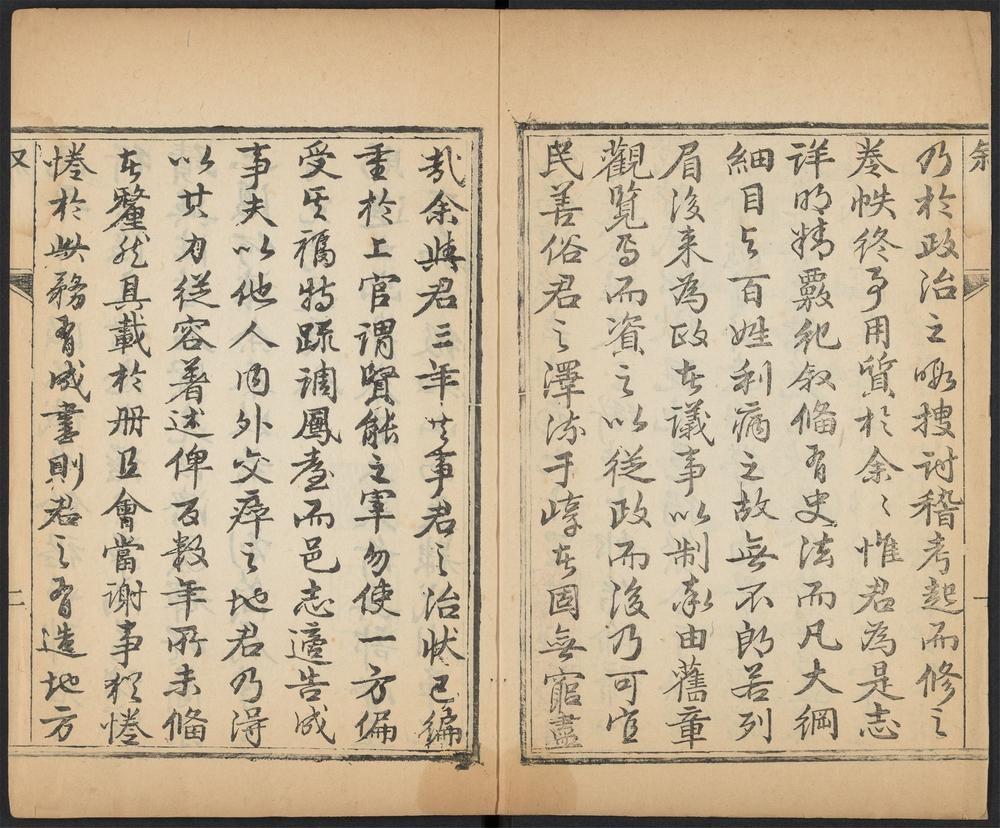 乃於政治之暇搜討稽考起而修之
卷帙終事用質於余〻惟君為是志
詳明精覈紀敘備有史法而凡大綱
細目與百姓利病之故無不郎若列
眉後来為政者議事以制率由舊章
觀覧焉而資之以從政而後乃可宜
民善俗君之澤流于崞者固無窮盡
哉余與君三年共事君之治狀已編
重於上官謂賢能之軍勿使一方偏
受其福特疏調鳳臺而邑志適告成
事夫以他人内外交瘁之地君乃得
以其力從容著述俾百數年所未備
者釐然具載於冊且會當謝事猶惓
惓於此務有成書則君之有造地方